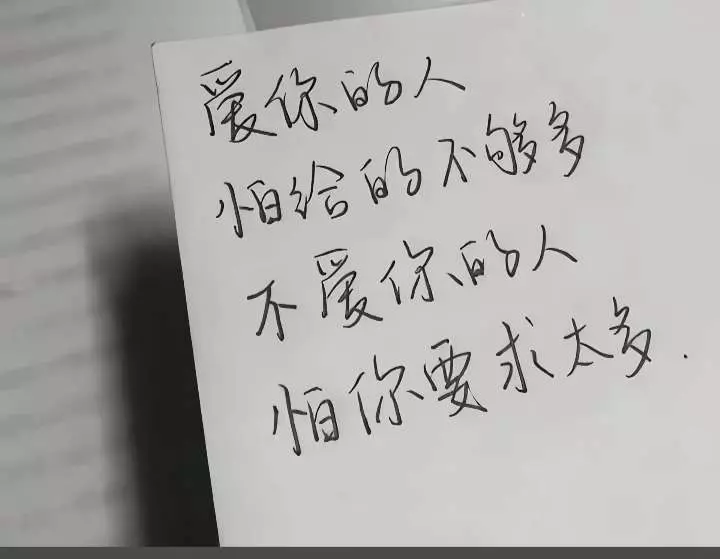 爱你的人
怕给的不够多
不爱你的人
怕你要求太多.